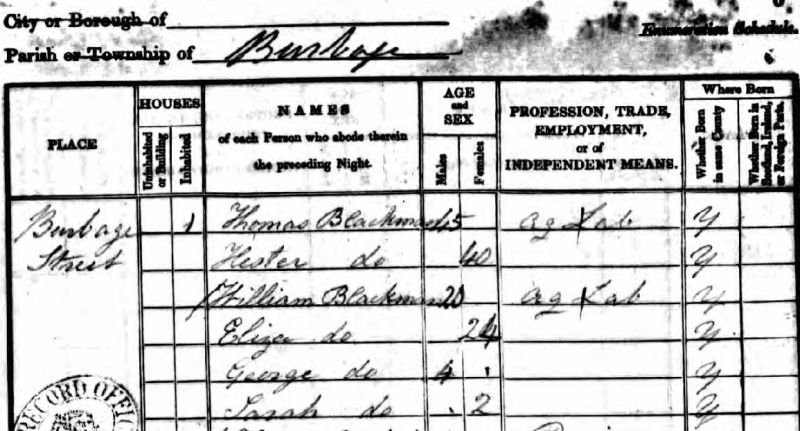 City or Borough of
Parish or Township of Burbage
Enumeration Schedule.
PLACE
HOUSES
Uninhabited or Building
Inhabited
NAMES
of each Person who abode therein
the preceding Night.
AGE
and
SEX
Males
Females
PROFESSION, TRADE,
EMPLOYMENT,
or of
INDEPENDENT MEANS.
Where Born
Whether Born in same County
Whether Born in Scotland, Ireland, or Foreign Parts.
Burbage 1 Thomas Blackman 45 Ag Lab y
Street Hester do 40 y
William Blackman 20 Ag Lab y
Eliza do 24 y
George do 4 y
Sarah do 2 y
RECORD OFFI